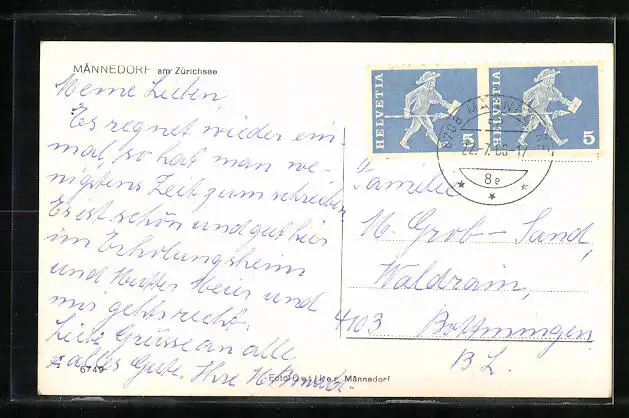 MÄNNEDORF am Zürichsee
Meine Lieben,
Es regnet wieder ein
mal, so hat man we-
nigstens Zeit zum schreiben
Es ist schön und gut hier
im Erholungsheim
und Mutter Meier und
mir gehts recht.
Liebe Grüsse an alle
alles Gute. Ihre
6749
Männedorf
HELVETIA 5
HELVETIA 5
8708
22.-7.
8e
Familie
M. Grob - Sand,
Waldrain,
4103 Bottmingen
BL.